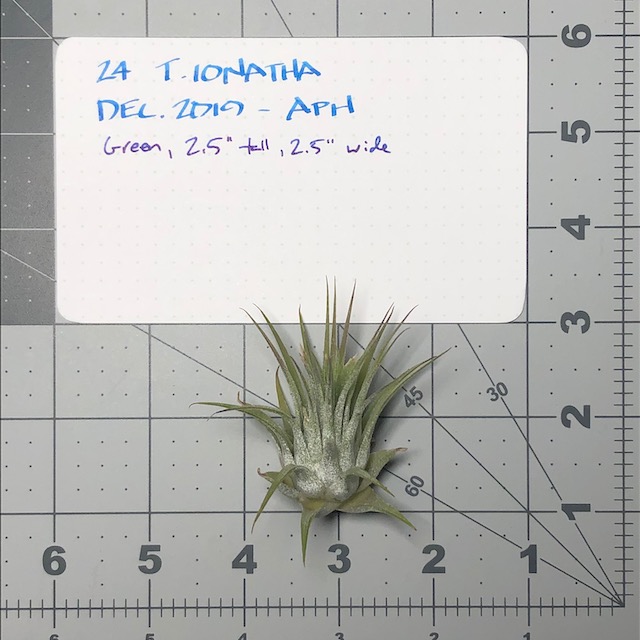 24 T. IONATHA
DEC. 2019 - APH
Green, 2.5" tall, 2.5" wide
6
5
4
3
2
1
30
45
60
6 5 4 3 2 1